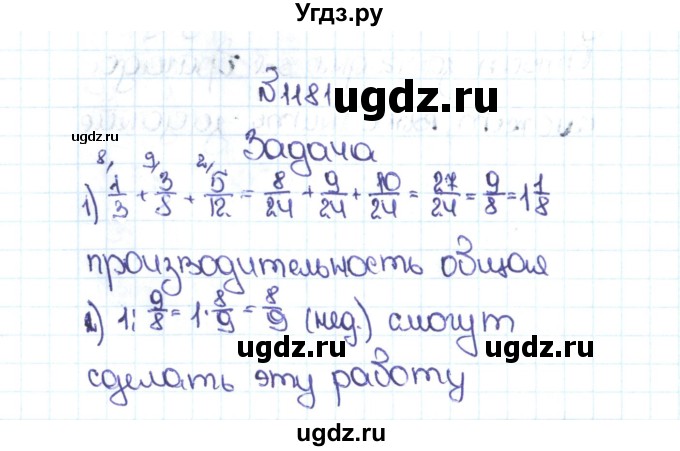 Угдз.ру
№1181
ugdz.ru
ugdz.ru
Задача
8, 9, 2,
1) 1/3 + 3/8 + 5/12 = 8/24 + 9/24 + 10/24 = 27/24 = 9/8 = 1 1/8
производительность общая
2) 1 : 9/8 = 1 · 8/9 = 8/9 (нед.) смогут
ugdz.ru ugdz.ru
сделать эту работу
ugdz.ru